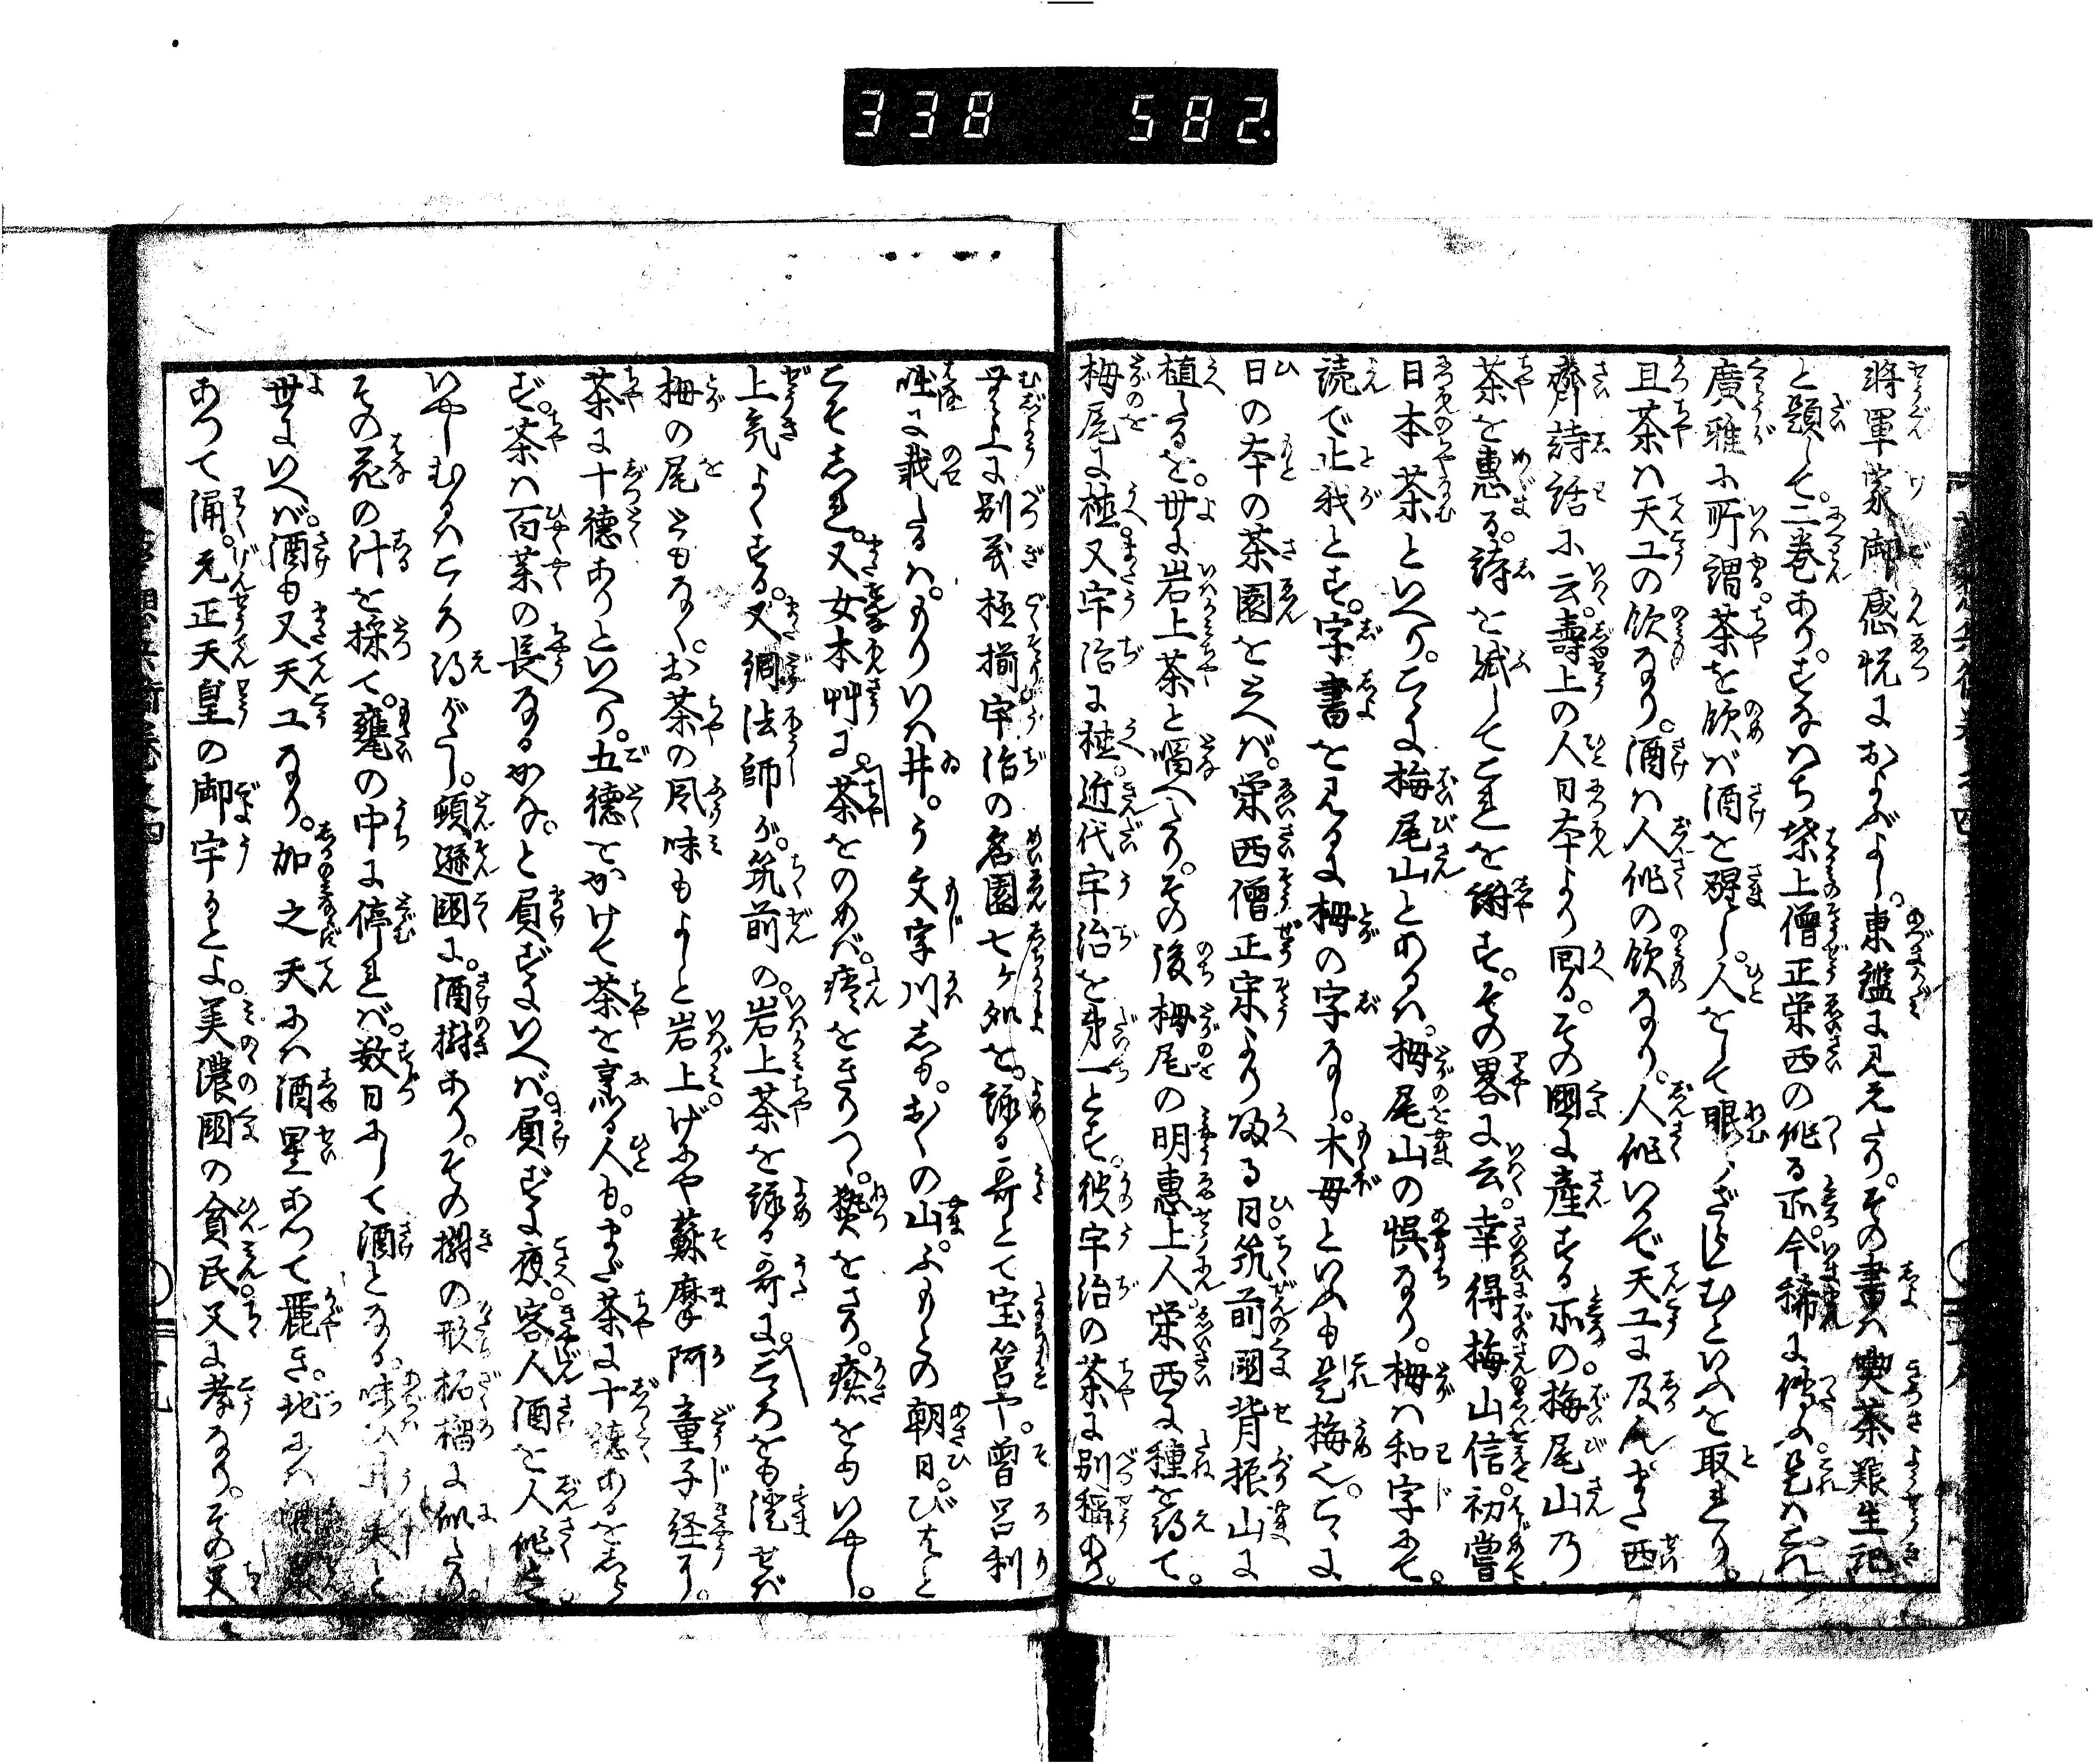 338 582
將軍家御感悦におよぶよし。東鑑に見えたり。その書は喫茶養生記
と題して。二巻あり。すなはち葉上僧正栄西の作る所。今稀に傳ふ。是はこれ
廣雅に所謂茶を飲ば酒を醒し。人をして眠らざらしむといふを取れり。
且茶は天工の飲なり。酒は人作の飲なり。人作いかで天工に及ん。また西
齋詩話に云。壽上の人日本より回る。その國に産する所の梅尾山乃
茶を惠る。詩を賦してこれを謝す。その畧に云。幸得梅山信。初嘗
日本茶といへり。こゝに梅尾山とあるは。栂尾山の悞なり。栂は和字にて。
読で止我とす。字書を見るに栂の字なし。木母といふも是梅也。こゝに
日の本の茶園をいへば。栄西僧正宋より歸る日。筑前國背振山に
植たるを。世に岩上茶と唱へたり。その後栂尾の明惠上人栄西に種を得て。
栂尾に植。又宇治に植。近代宇治を第一とす。彼宇治の茶に別稱あり。
無上に別義極揃宇治の名園七ケ処を。詠る哥とて宝筥や。曽呂利
咄に載たるは。もりいは井。う文字川しも。おくの山。ふもとの朝日。びはと
こそしれ。又女本艸に。茶をのめば。痰をきりつ。熱をさり。瘡をもいやし。
上気よくする。又綱法師が。筑前の。岩上茶を詠る哥に。こゝろをも澄せば
栂の尾ともなく。お茶の風味もよしと岩上げにや蘇摩阿童子経に。
茶に十徳ありといへり。五徳とかけて茶を烹る人も。まだ茶に十徳あるをしら
ず。茶は百薬の長なるかな。と屓ずにいへば。屓ずに應。客人酒を人作と
いやしむるはこゝろ得がたし。頓遜國に。酒樹あり。その樹の形柘榴に似たり。
その花の汁を採て。甕の中に停れば。数日にして酒となる。味
世にいへば。酒も又天工なり。加之天には酒星あつて麗き。地には酒泉
あつて涌。元正天皇の御宇かとよ。美濃國の貧民又に孝なり。その父